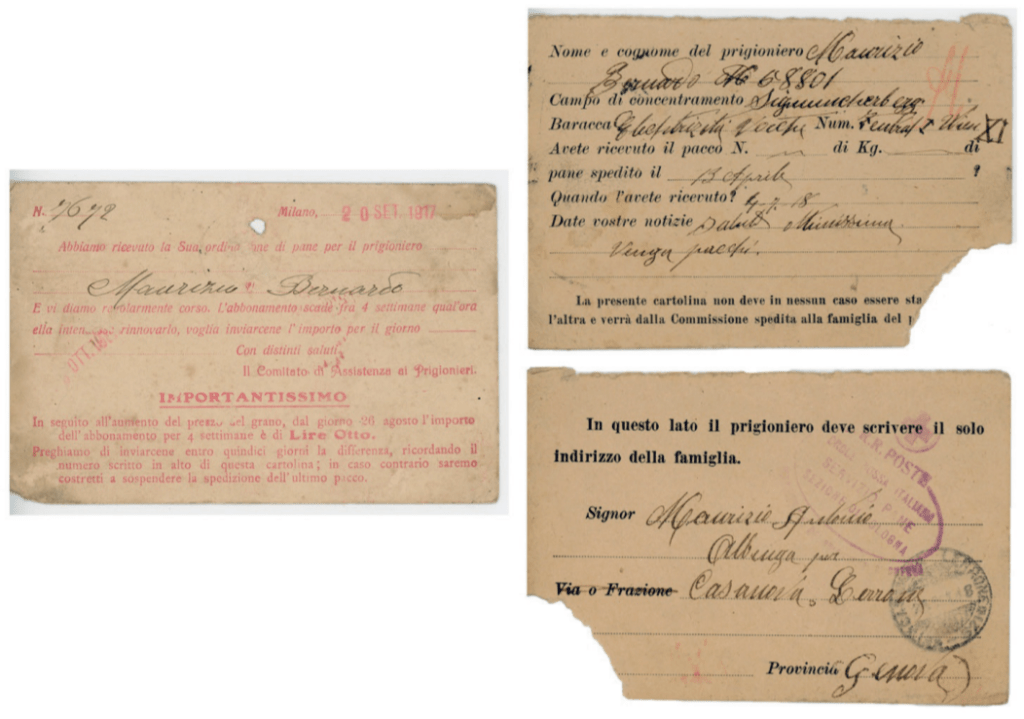 N. 7672 Milano, 20 SET. 1917
Abbiamo ricevuto la Sua ordi ne di pane per il prigioniero
Maurizio Bernardo
E vi diamo regolarmente corso. L'abbonamento scade fra 4 settimane qual'ora
ella inten rinnovarlo, voglia inviarcene l'importo per il giorno
Con distinti saluti,
Il Comitato di Assistenza ai Prigionieri.
OTT. 19
IMPORTANTISSIMO
In seguito all'aumento del prezzo del grano, dal giorno 26 agosto l'importo
dell'abbonamento per 4 settimane è di Lire Otto.
Preghiamo di inviarcene entro quindici giorni la differenza, ricordando il
numero scritto in alto di questa cartolina; in caso contrario saremo
costretti a sospendere la spedizione dell'ultimo pacco.
Nome e cognome del prigioniero Maurizio
Bernardo 68801
Campo di concentramento Sigmundsherberg
Baracca Num. XI
Avete ricevuto il pacco N. di Kg. di
pane spedito il Aprile ?
Quando l'avete ricevuto? 4-7-18
Date vostre notizie
Venga pacchi.
La presente cartolina non deve in nessun caso essere sta
l'altra e verrà dalla Commissione spedita alla famiglia del p
In questo lato il prigioniero deve scrivere il solo
indirizzo della famiglia.
R. POSTE
CROCE ROSSA ITALIANA
SERVIZIO PANE
SEZIONE DI BOLOGNA
Signor Maurizio Antonio
Albenga per
Via o Frazione Casanova
Provincia Genova